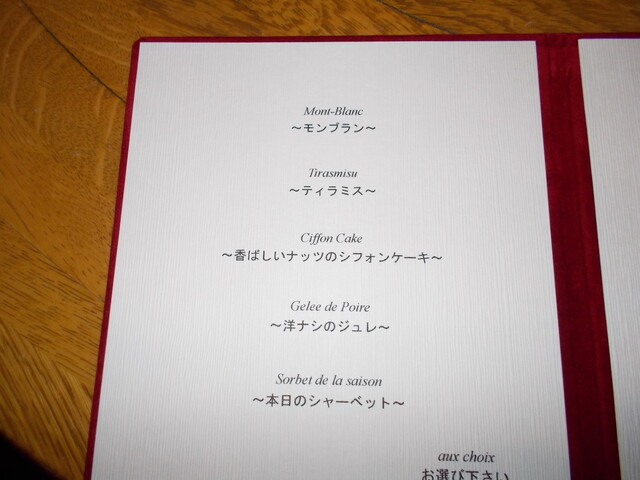 Mont-Blanc
～モンブラン～
Tirasmisu
～ティラミス～
Ciffon Cake
～香ばしいナッツのシフォンケーキ～
Gelee de Poire
～洋ナシのジュレ～
Sorbet de la saison
～本日のシャーベット～
aux choix
お選び下さい